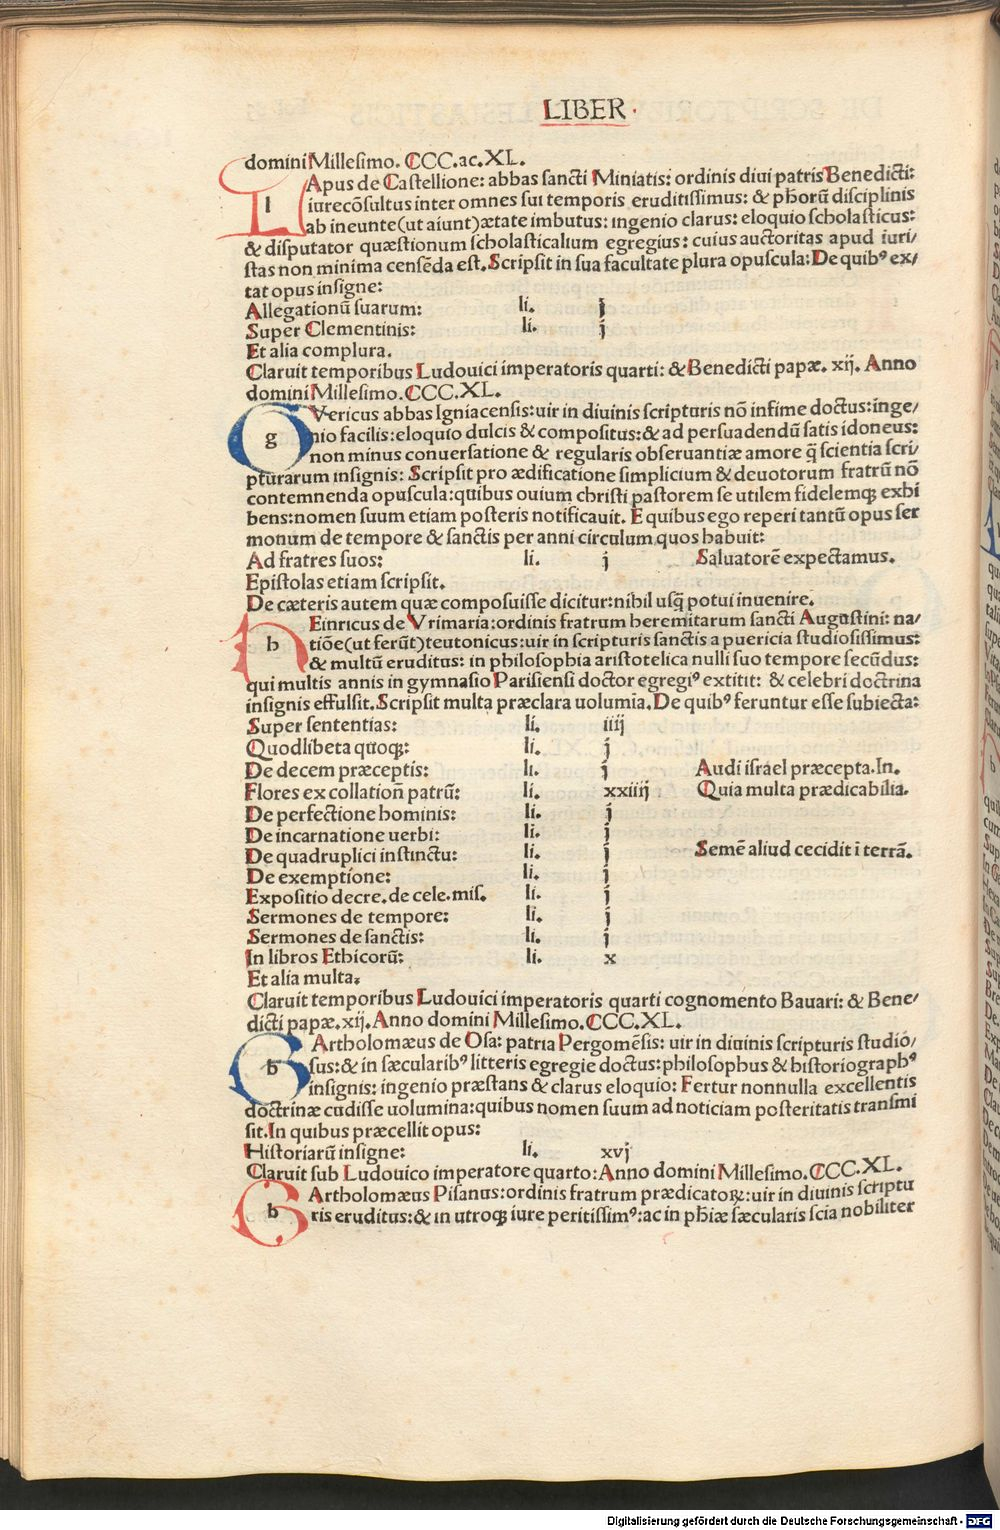 LIBER
domini Millesimo. CCC. ac. XL.
LApus de Castellione: abbas sancti Miniatis: ordinis diui patris Benedicti:
iurecõsultus inter omnes sui temporis eruditissimus: & ph̃orũ disciplinis
ab ineunte (ut aiunt) ætate imbutus: ingenio clarus: eloquio scholasticus:
& disputator quæstionum scholasticalium egregius: cuius auctoritas apud iuri/
stas non minima censẽda est. Scripsit in sua facultate plura opuscula: De quibꝰ ex/
tat opus insigne:
Allegationũ suarum: li. j
Super Clementinis: li. j
Et alia complura.
Claruit temporibus Ludouici imperatoris quarti: & Benedicti papæ. xij. Anno
domini Millesimo. CCC. XL.
gVericus abbas Igniacensis: uir in diuinis scripturis nõ infime doctus: inge/
nio facilis: eloquio dulcis & compositus: & ad persuadendũ satis idoneus:
non minus conuersatione & regularis obseruantiæ amore q̃ scientia scri/
pturarum insignis: Scripsit pro ædificatione simplicium & deuotorum fratrũ nõ
contemnenda opuscula: quibus ouium christi pastorem se utilem fidelemqꝫ exhi
bens: nomen suum etiam posteris notificauit. E quibus ego reperi tantũ opus ser
monum de tempore & sanctis per anni circulum quos habuit:
Ad fratres suos: li. j Saluatorẽ expectamus.
Epistolas etiam scripsit.
De cæteris autem quæ composuisse dicitur: nihil usq̃ potui inuenire.
hEinricus de Vrimaria: ordinis fratrum heremitarum sancti Augustini: na/
tiõe (ut ferũt) teutonicus: uir in scripturis sanctis a puericia studiosissimus:
& multũ eruditus: in philosophia aristotelica nulli suo tempore secũdus:
qui multis annis in gymnasio Parisiensi doctor egregiꝰ extitit: & celebri doctrina
insignis effulsit. Scripsit multa præclara uolumia. De quibꝰ feruntur esse subiecta:
Super sententias: li. iiij
Quodlibeta quoqꝫ: li. j
De decem præceptis: li. j Audi israel præcepta. In.
Flores ex collation̄ patrũ: li. xxiiij Quia multa prædicabilia.
De perfectione hominis: li. j
De incarnatione uerbi: li. j
De quadruplici instinctu: li. j Semẽ aliud cecidit ĩ terrã.
De exemptione: li. j
Expositio decre. de cele. mis. li. j
Sermones de tempore: li. j
Sermones de sanctis: li. j
In libros Ethicorũ: li. x
Et alia multa.
Claruit temporibus Ludouici imperatoris quarti cognomento Bauari: & Bene/
dicti papæ. xij. Anno domini Millesimo. CCC. XL.
bArtholomæus de Osa: patria Pergomẽsis: uir in diuinis scripturis studio/
sus: & in sæcularibꝰ litteris egregie doctus: philosophus & historiographꝰ
insignis: ingenio præstans & clarus eloquio: Fertur nonnulla excellentis
doctrinæ cudisse uolumina: quibus nomen suum ad noticiam posteritatis transmi
sit. In quibus præcellit opus:
Historiarũ insigne: li. xvj
Claruit sub Ludouico imperatore quarto: Anno domini Millesimo. CCC. XL.
bArtholomæus Pisanus: ordinis fratrum prædicatoꝝ: uir in diuinis scriptu
ris eruditus: & in utroqꝫ iure peritissimꝰ: ac in ph̃iæ sæcularis scĩa nobiliter
Digitalisierung gefördert durch die Deutsche Forschungsgemeinschaft - DFG